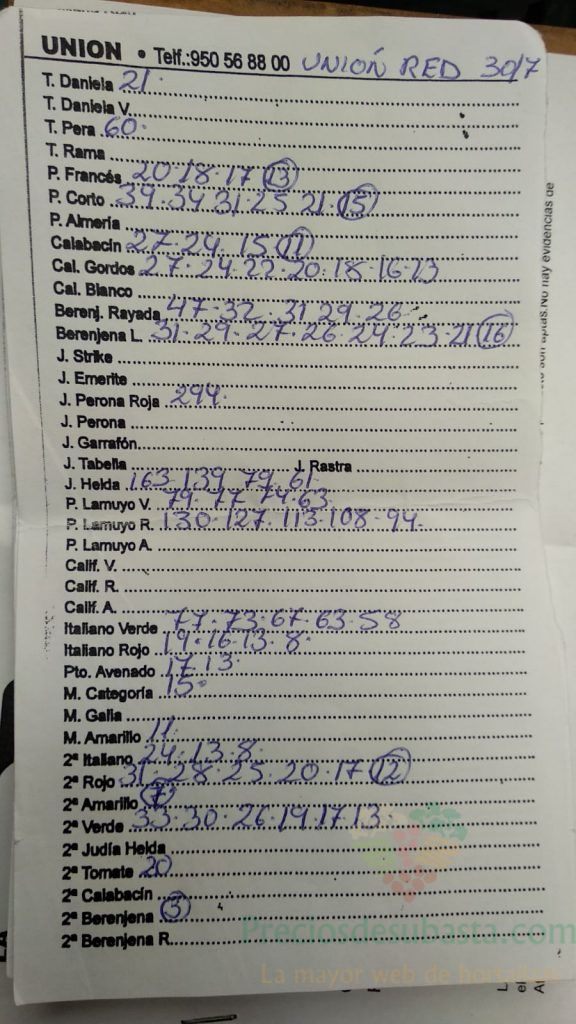 UNION • Telf.:950 56 88 00 UNION RED 30/7
T. Daniela 21.
T. Daniela V.
T. Pera 60.
T. Rama
P. Francés 20.18.17 (13)
P. Corto 39.34 31.25 21.(15)
P. Almería
Calabacín 27.24. 15 (11)
Cal. Gordos 27.24.22.20.18.16.13
Cal. Blanco
Berenj. Rayada 47.32. 31 29.26
Berenjena L. 31.29.27.26.24.23.21 (16)
J. Strike
J. Emerite
J. Perona Roja 294.
J. Perona
J. Garrafón
J. Tabella J. Rastra
J. Helda 163.139 79.61
P. Lamuyo V. 79.77.74.63
P. Lamuyo R. 130.127.113.108.94
P. Lamuyo A.
Calif. V.
Calif. R.
Calif. A.
Italiano Verde 77.73.67.63.58
Italiano Rojo 19.16.13.8.
Pto. Avenado 17.13.
M. Categoría 15.
M. Galia
M. Amarillo 11.
2ª Italiano 24.13.8.
2ª Rojo 31.28.25.20.17 (12)
2ª Amarillo (7)
2ª Verde 33.30.26.19.17.13.
2ª Judía Helda
2ª Tomate 20
2ª Calabacín
2ª Berenjena (3)
2ª Berenjena R.
son aptas.No hay evidencias de
Preciosdesubasta.com
La mayor web de